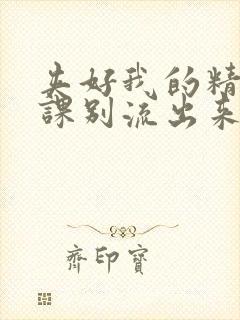 夹好我的精
課别流出来
齐印寶